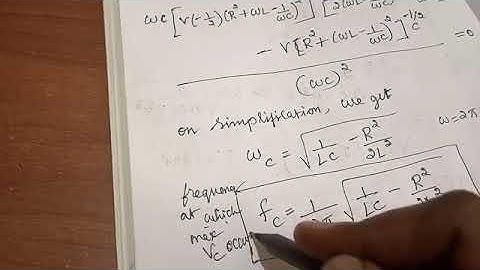 ωC [V(-1/2)(R² + ωL - 1/ωC)⁻ ] [2(ωL
- V[R² + (ωL - 1/ωC)²]^(-1/2) C
= 0
(ωC)²
on simplification, we get
ω_C = √(1/LC - R²/2L²)
ω = 2π
frequency
at which
max
V_C occu
f_C = 1/2π √(1/LC - R²